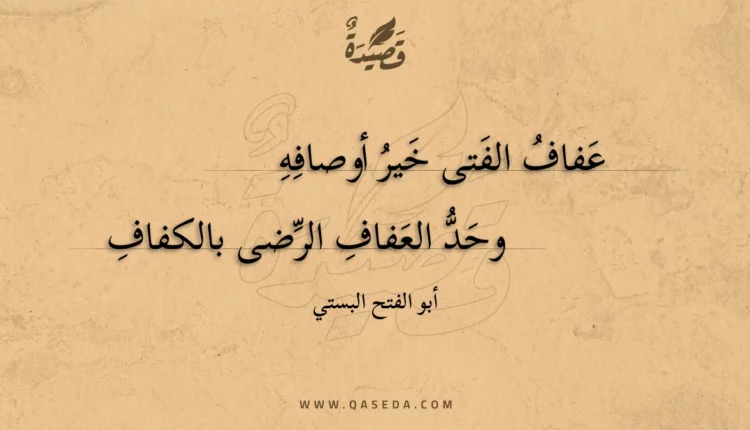 قَصِيْدَةٌ
عَفافُ الفَتى خَيرُ أوصافِهِ
وحَدُّ العَفافِ الرِّضى بالكفافِ
أبو الفتح البستي
WWW.QASEDA.COM